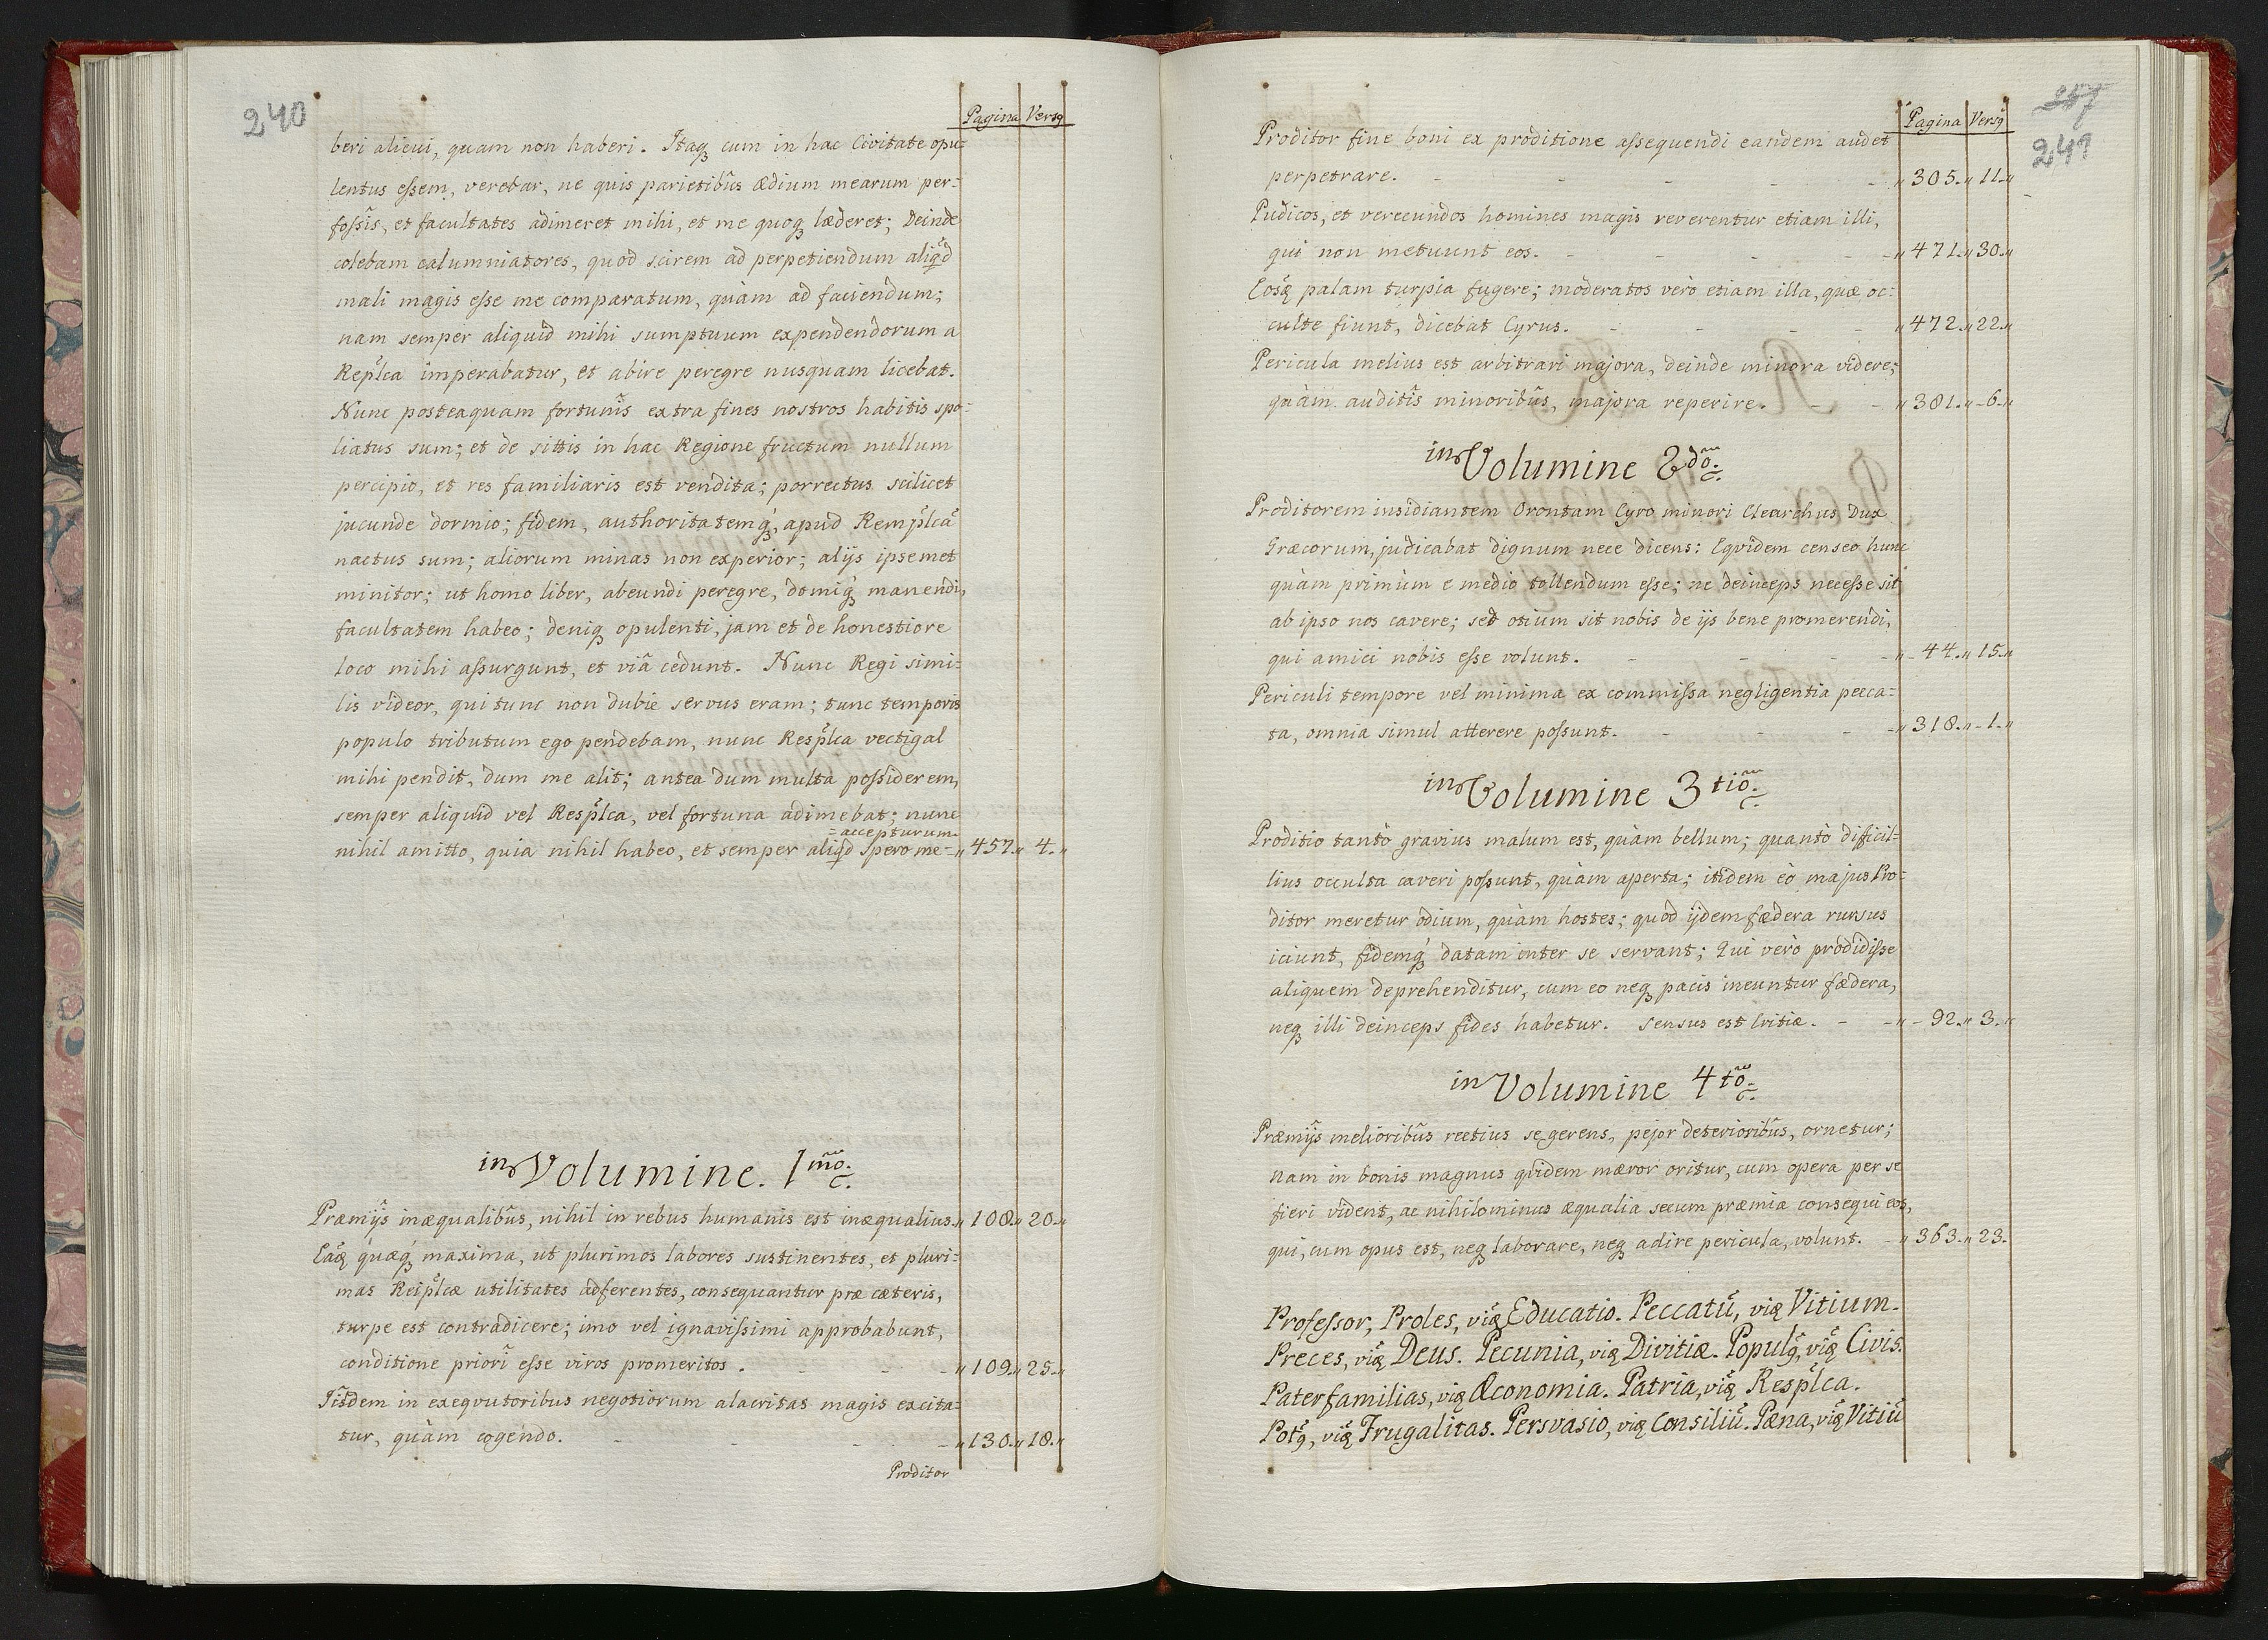 240
Pagina Versꝯ
beri alicui, quam non haberi. Itaqꝫ cum in hac Civitate opu=
lentus eſsem, verebar, ne quis parietibus ædium mearum per=
foſsis, et facultates adimeret mihi, et me quoqꝫ læderet; Deinde
colebam calumniatores, quod scirem ad perpetiendum aliqd
mali magis eſse me comparatum, quàm ad faciendum;
nam semper aliquid mihi sumptuum expendendorum a
Replca imperabatur, et abire peregre nusquam licebat.
Nunc posteaquam fortunis extra fines nostros habitis spo=
liatus sum; et de sittis in hac Regione fructum nullum
percipio, et res familiaris est vendita; porrectus scilicet
jucunde dormio; fidem, authoritatemqꝫ, apud Remplcã
nactus sum; aliorum minas non experior; alijs ipsemet
minitor; ut homo liber, abeundi peregre, domiqꝫ manendi,
facultatem habeo; deniqꝫ opulenti, jam et de honestiore
loco mihi aſsurgunt, et viâ cedunt. Nunc Regi simi=
lis videor, qui tunc non dubie servus eram; tunc temporis
populo tributum ego pendebam, nunc Resplca vectigal
mihi pendit, dum me alit; antea dum multa poſsiderem,
semper aliquid vel Resplca, vel fortuna adimebat; nunc
=accepturum.
nihil amitto, quia nihil habeo, et semper aliqd spero me= „457.„ 4.„
in Volumine. 1mõ.
Præmijs inæqualibus, nihil in rebus humanis est inæqualius. „108.„20.„
Eaqꝫ quæqꝫ maxima, ut plurimos labores sustinentes, et pluri=
mas Resplcæ utilitates adferentes, consequantur præ cæteris,
turpe est contradicere; imo vel ignaviſsimi approbabunt,
conditione priori eſse viros promeritos. - - „109.„25.„
Iisdem in exeqvutoribus negotiorum alacritas magis excita=
tur, quàm cogendo. - - - - „130.„18.„
Proditor
257
241
Pagina Versꝯ
Proditor fine boni ex proditione aſsequendi eandem audet
perpetrare. - - - - - „305.„11.„
Pudicos, et verecundos homines magis reverentur etiam illi,
qui non metuunt eos. - - - - „471.„30.„
Eosqꝫ palam turpia fugere; moderatos verò etiam illa, quæ oc=
culte fiunt, dicebat Cyrus. - - - - „472.„22.„
Pericula melius est arbitrari majora, deinde minora videre;
quàm auditis minoribus, majora reperire. - - „381.„-6.„
in Volumine 2dõ.
Proditorem insidiantem Orontam Cyro minori Clearchus Dux
Græcorum, judicabat dignum nece dicens: Eqvidem censeo hunc
quàm primùm e medio tollendum eſse; ne deinceps neceſse sit
ab ipso nos cavere; sed otium sit nobis de ijs bene promerendi,
qui amici nobis eſse volunt. - - - - „-44.„15.„
Periculi tempore vel minima ex commiſsa negligentia pecca=
ta, omnia simul atterere poſsunt. - - - „318.„-1.„
in Volumine 3tiõ.
Proditio tantò gravius malum est, quàm bellum; quantò difficil=
lius occulta caveri poſsunt, quàm aperta; itidem eò majus Pro=
ditor meretur odium, quàm hostes; quod ijdem fædera rursus
iciunt, fidemqꝫ datam inter se servant; Qui verò prodidiſse
aliquem deprehenditur, cum eo neqꝫ pacis ineuntur fædera,
neqꝫ illi deinceps fides habetur. Sensus est Critiæ. - „-92.„3.„
in Volumine 4tõ.
Præmijs melioribus rectius se gerens, pejor deterioribus, ornetur;
nam in bonis magnus quidem mæror oritur, cum opera per se
fieri vident, ac nihilominus æqualia secum præmia consequi eos,
qui, cum opus est, neqꝫ laborare, neqꝫ adire pericula, volunt. - „363.„23.
Profeſsor, Proles, viqꝫ Educatio. Peccatũ, viqꝫ Vitium.
Preces, viqꝫ Deus. Pecunia, viqꝫ Divitiæ. Populꝯ, viqꝫ Civis.
Paterfamilias, viqꝫ Œconomia. Patria, viqꝫ Resplca.
Potꝯ, viqꝫ Frugalitas. Persvasio, viqꝫ Consiliũ. Pæna, viqꝫ Vitiũ